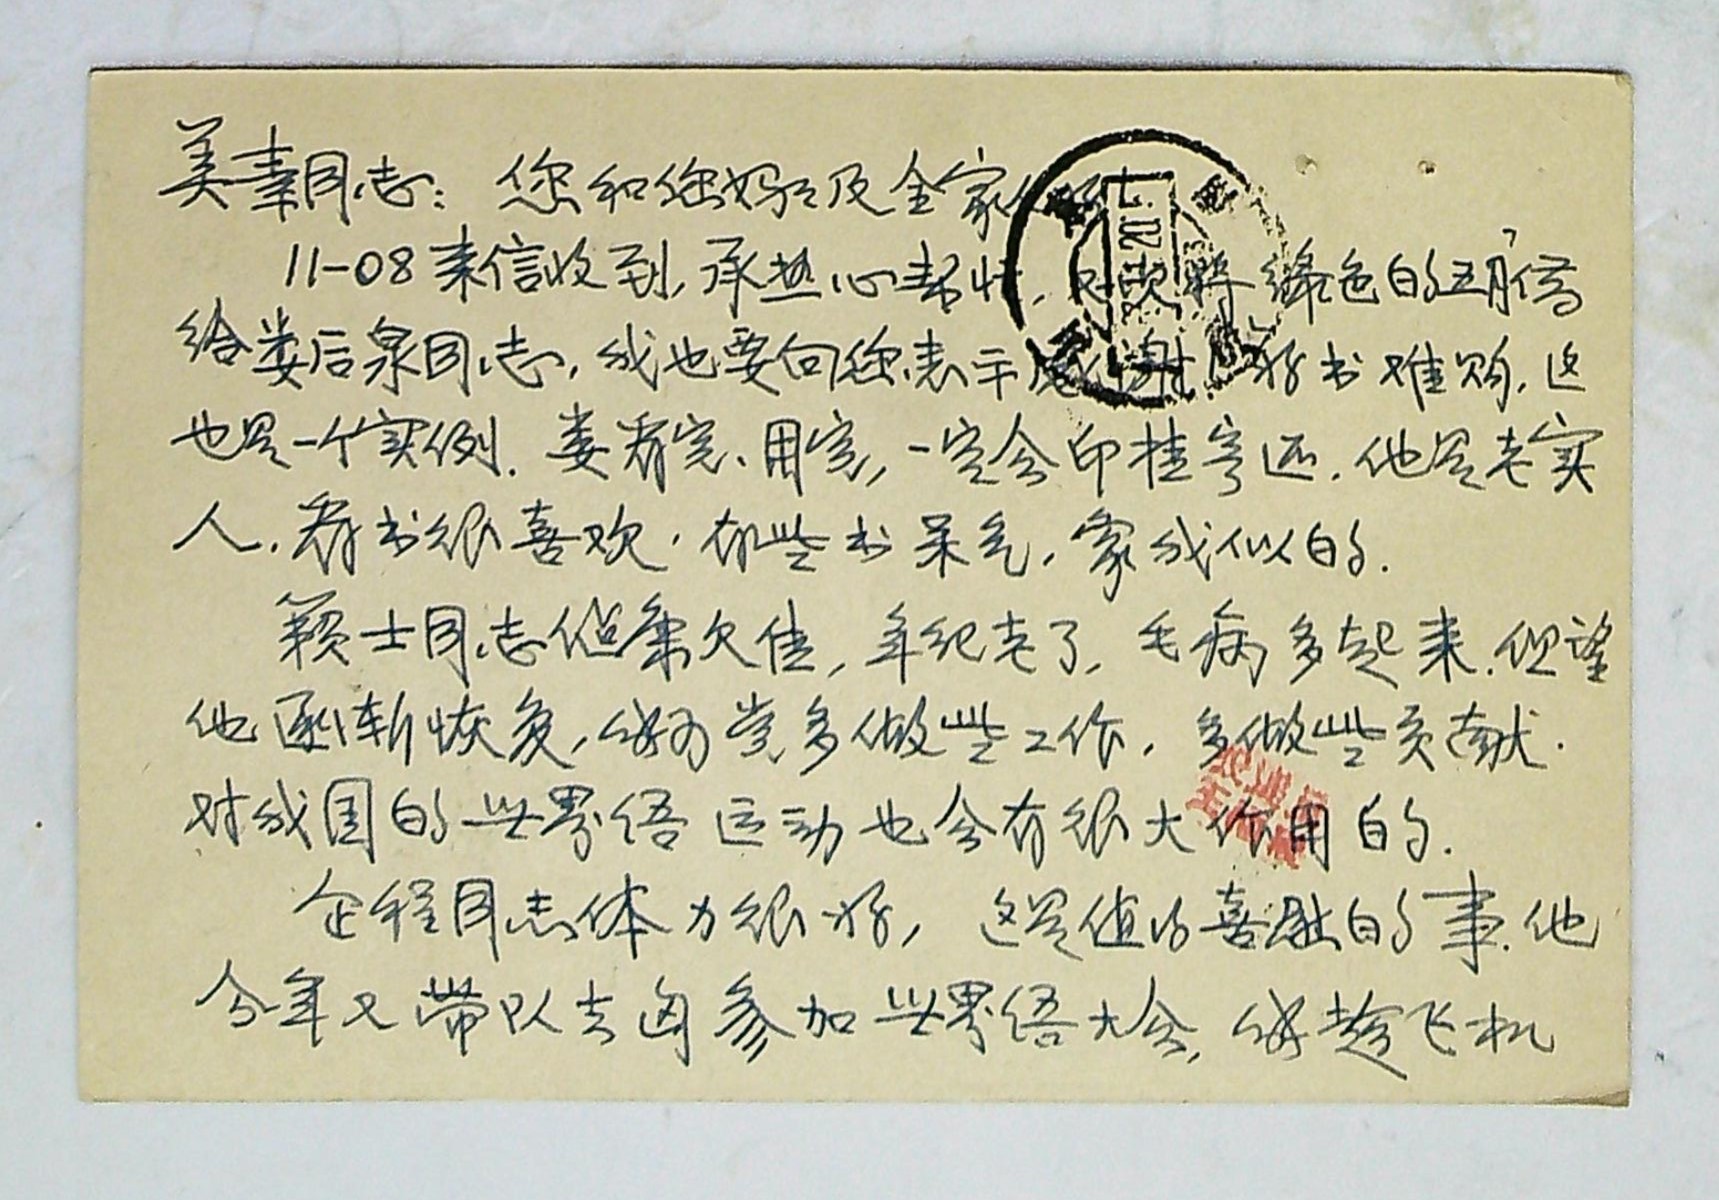 美素同志：您和您好及全家
11-08来信收到，承热心帮忙，将绿色的五月借
给娄后泉同志，我也要向您表示感谢！好书难购，这
也是一个实例．娄看完、用完，一定会印挂寄还．他是老实
人．看书很喜欢．有些书呆气，象我似的．
籁士同志健康欠佳，年纪老了，毛病多起来．但望
他逐渐恢复，好为党多做些工作，多做些贡献．
对我国的世界语运动也会有很大作用的．
企程同志体力很好，这是值得喜欢的事．他
今年又带队去匈参加世界语大会，好趁飞机